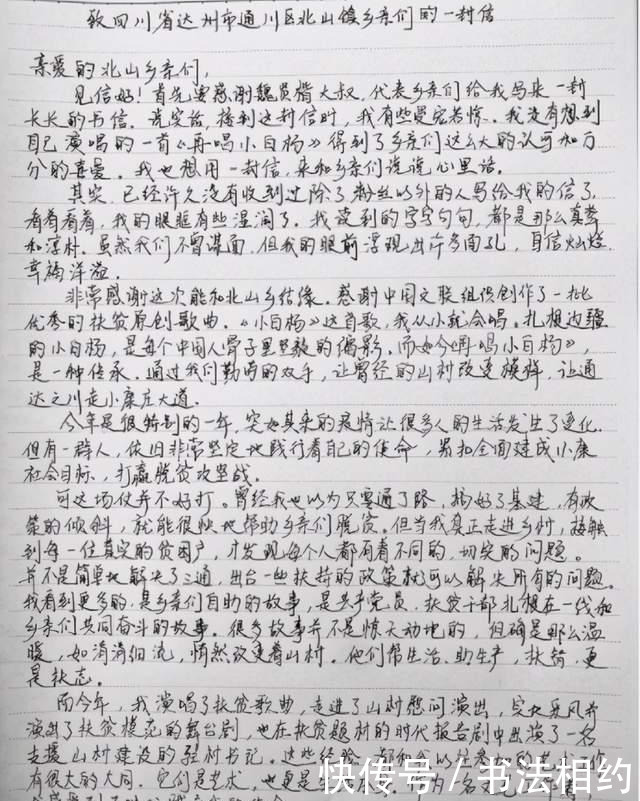 致四川省达州市通川区北山镇乡亲们的一封信
亲爱的北山乡亲们，
见信好！首先要感谢魏贤楷大叔，代表乡亲们给我写来一封
长长的书信。说实话，接到这封信时，我有些受宠若惊。我没有想到
自己演唱的一首《再唱小白杨》得到了乡亲们这么大的认可和万
分的喜爱。我也想用一封信，来和乡亲们说说心里话。
其实，已经许久没有收到过除了粉丝以外的人写给我的信了，
看着看着，我的眼眶有些湿润了。我读到的字字句句，都是那么真挚
和淳朴。虽然我们不曾谋面，但我的眼前浮现出许多面孔，自信灿烂，
幸福洋溢。
非常感谢这次能和北山乡结缘。感谢中国文联组织创作了一批
优秀的扶贫原创歌曲。《小白杨》这首歌，我从小就会唱。扎根边疆
的小白杨，是每个中国人骨子里坚毅的缩影。而如今《再唱小白杨》，
是一种传承。通过我们勤劳的双手，让曾经的山村改变模样，让通
达之川走小康庄大道。
今年是很特别的一年，突如其来的疫情让很多人的生活发生了变化。
但有一群人，依旧非常坚定地践行着自己的使命，紧扣全面建成小康
社会目标，打赢脱贫攻坚战。
可这场仗并不好打。曾经我也以为只要通了路，搞好了基建，有政
策的倾斜，就能很快地帮助乡亲们脱贫。但当我真正走进乡村，接触
到每一位真实的贫困户，才发现每个人都有着不同的、切实的问题。
并不是简单地解决了三通，出台一些扶持的政策就可以解决所有的问题。
我看到更多的，是乡亲们自助的故事，是共产党员、扶贫干部扎根在一线和
乡亲们共同奋斗的故事。很多故事并不是惊天动地的，但确是那么温
暖，如涓涓细流，悄然改变着山村。他们帮生活、助生产，扶智，更
是扶志。
而今年，我演唱了扶贫歌曲，走进了山村慰问演出，
演出了扶贫模范的舞台剧，也在扶贫题材的时代报告剧中出演了一名
支援山村建设的驻村书记。这些经验，都和我以往参与的艺术工作
有很大的不同。它们是艺术，也更是
快传号 / 书法相约